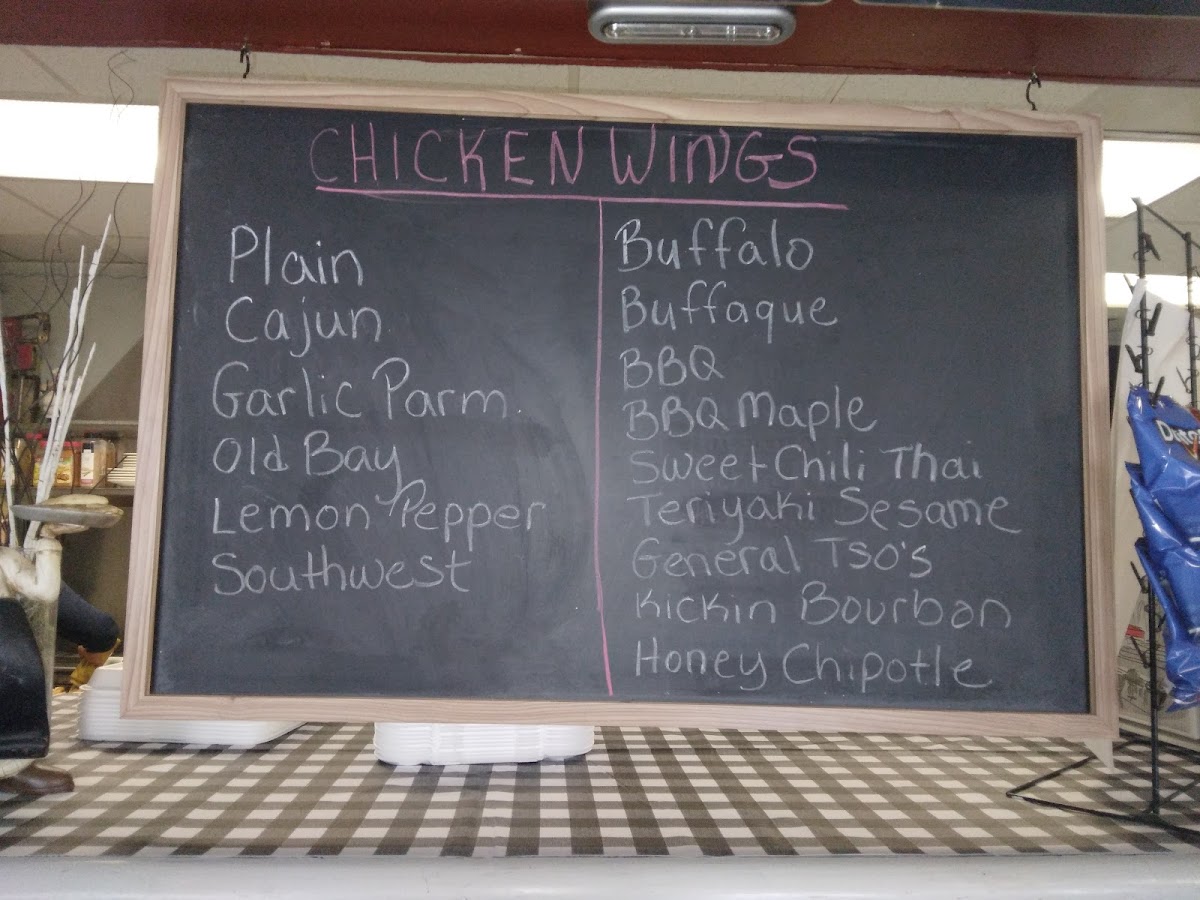 CHICKEN WINGS
Plain
Cajun
Garlic Parm
Old Bay
Lemon Pepper
Southwest
Buffalo
Buffaque
BBQ
BBQ Maple
Sweet Chili Thai
Teriyaki Sesame
General Tso's
Kickin Bourbon
Honey Chipotle